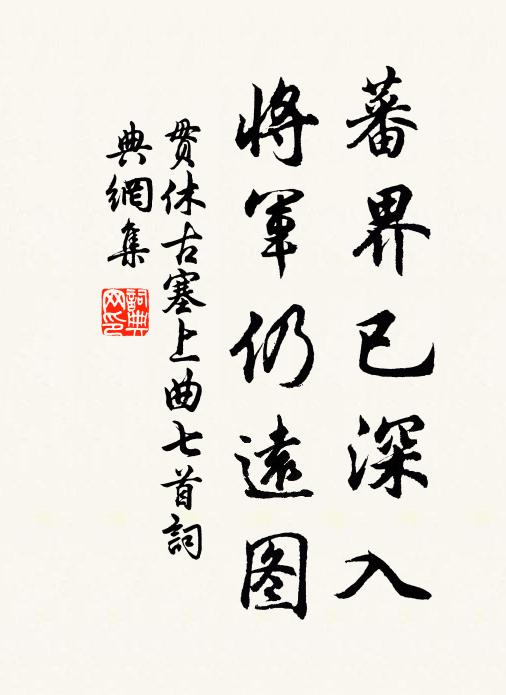 蕃界已深入
將軍仍遠图
貫休古塞上曲七首詞
典網集
詞典网印